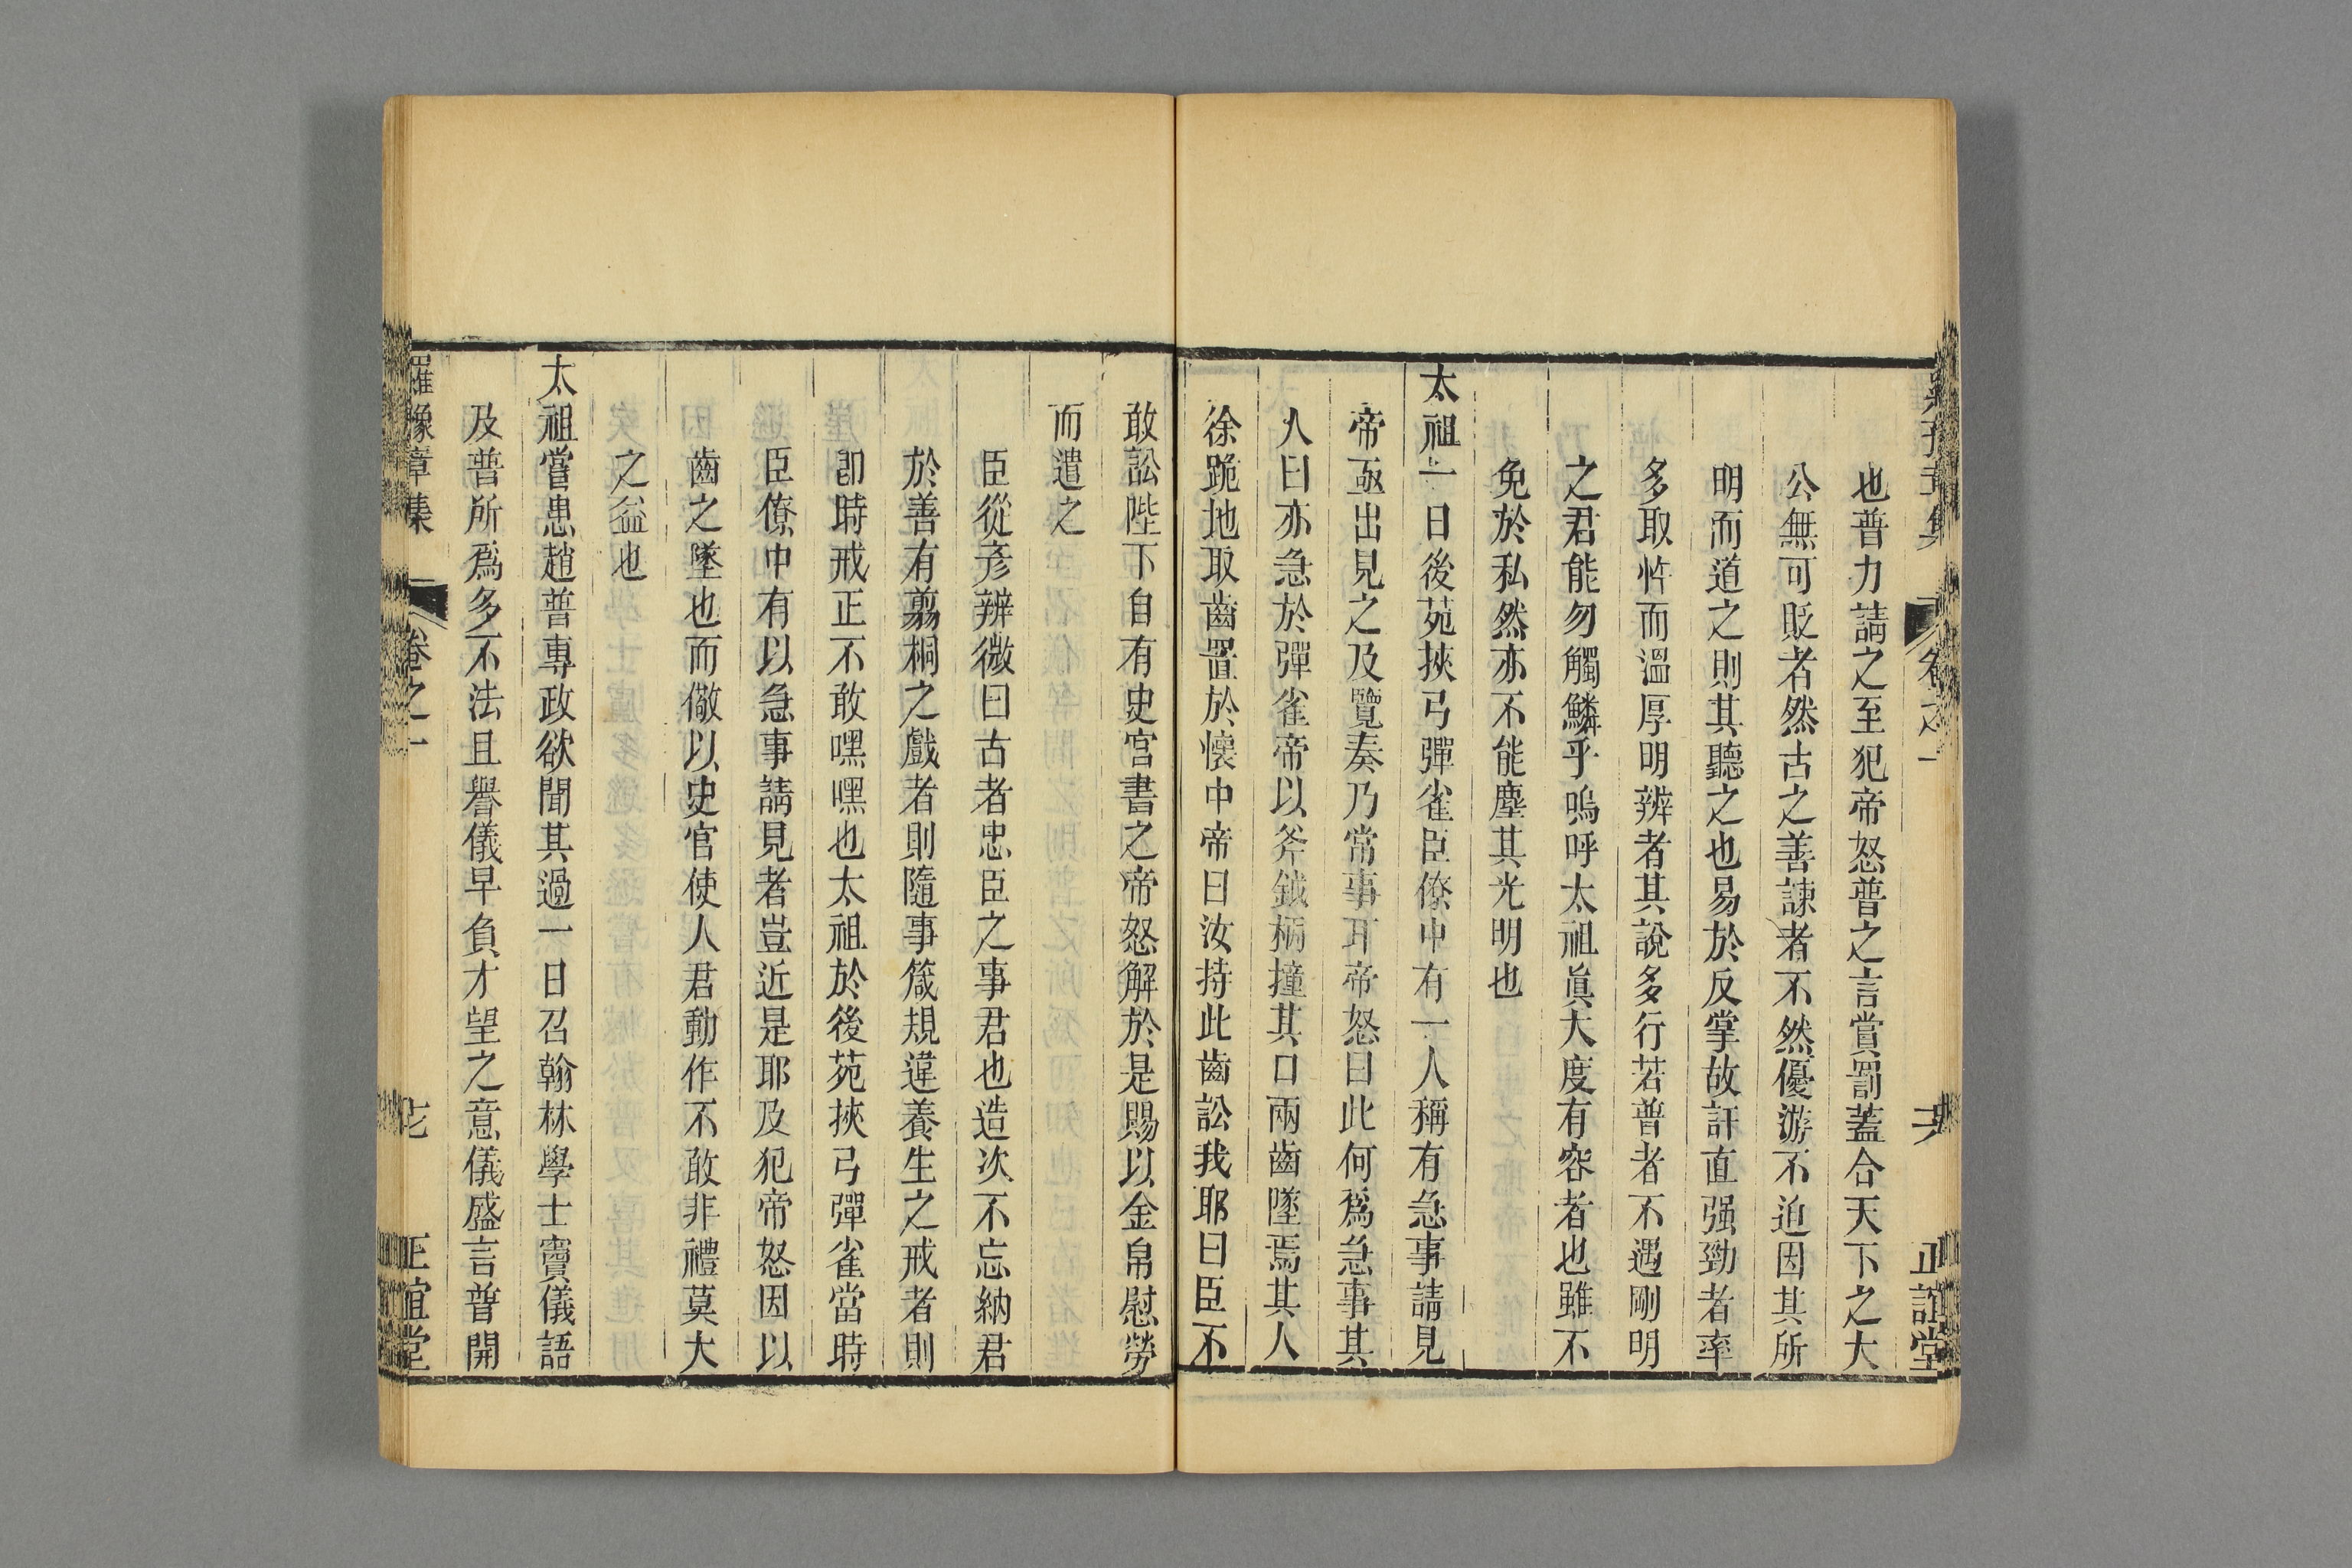 也普力請之至犯帝怒普之言賞罰蓋合天下之大
公無可貶者然古之善諫者不然優游不迫因其所
明而道之則其聽之也易於反掌故訐直强勁者率
多取忤而溫厚明辨者其說多行若普者不遇剛明
之君能勿觸鱗乎嗚呼太祖眞大度有容者也雖不
免於私然亦不能塵其光明也
太祖一日後苑挾弓彈雀臣僚中有一人稱有急事請見
帝亟出見之及覽奏乃常事耳帝怒曰此何爲急事其
人曰亦急於彈雀帝以斧鉞柄撞其口兩齒墜焉其人
徐跪地取齒置於懷中帝曰汝持此齒訟我耶曰臣不
敢訟陛下自有史官書之帝怒解於是賜以金帛慰勞
而遣之
臣從彥辨微曰古者忠臣之事君也造次不忘納君
於善有翦桐之戲者則隨事箴規違養生之戒者則
卽時戒正不敢嘿嘿也太祖於後苑挾弓彈雀當時
臣僚中有以急事請見者豈近是耶及犯帝怒因以
齒之墜也而儆以史官使人君動作不敢非禮莫大
之益也
太祖嘗患趙普專政欲聞其過一日召翰林學士竇儀語
及普所爲多不法且譽儀早負才望之意儀盛言普開
羅豫章集 卷之一 正誼堂